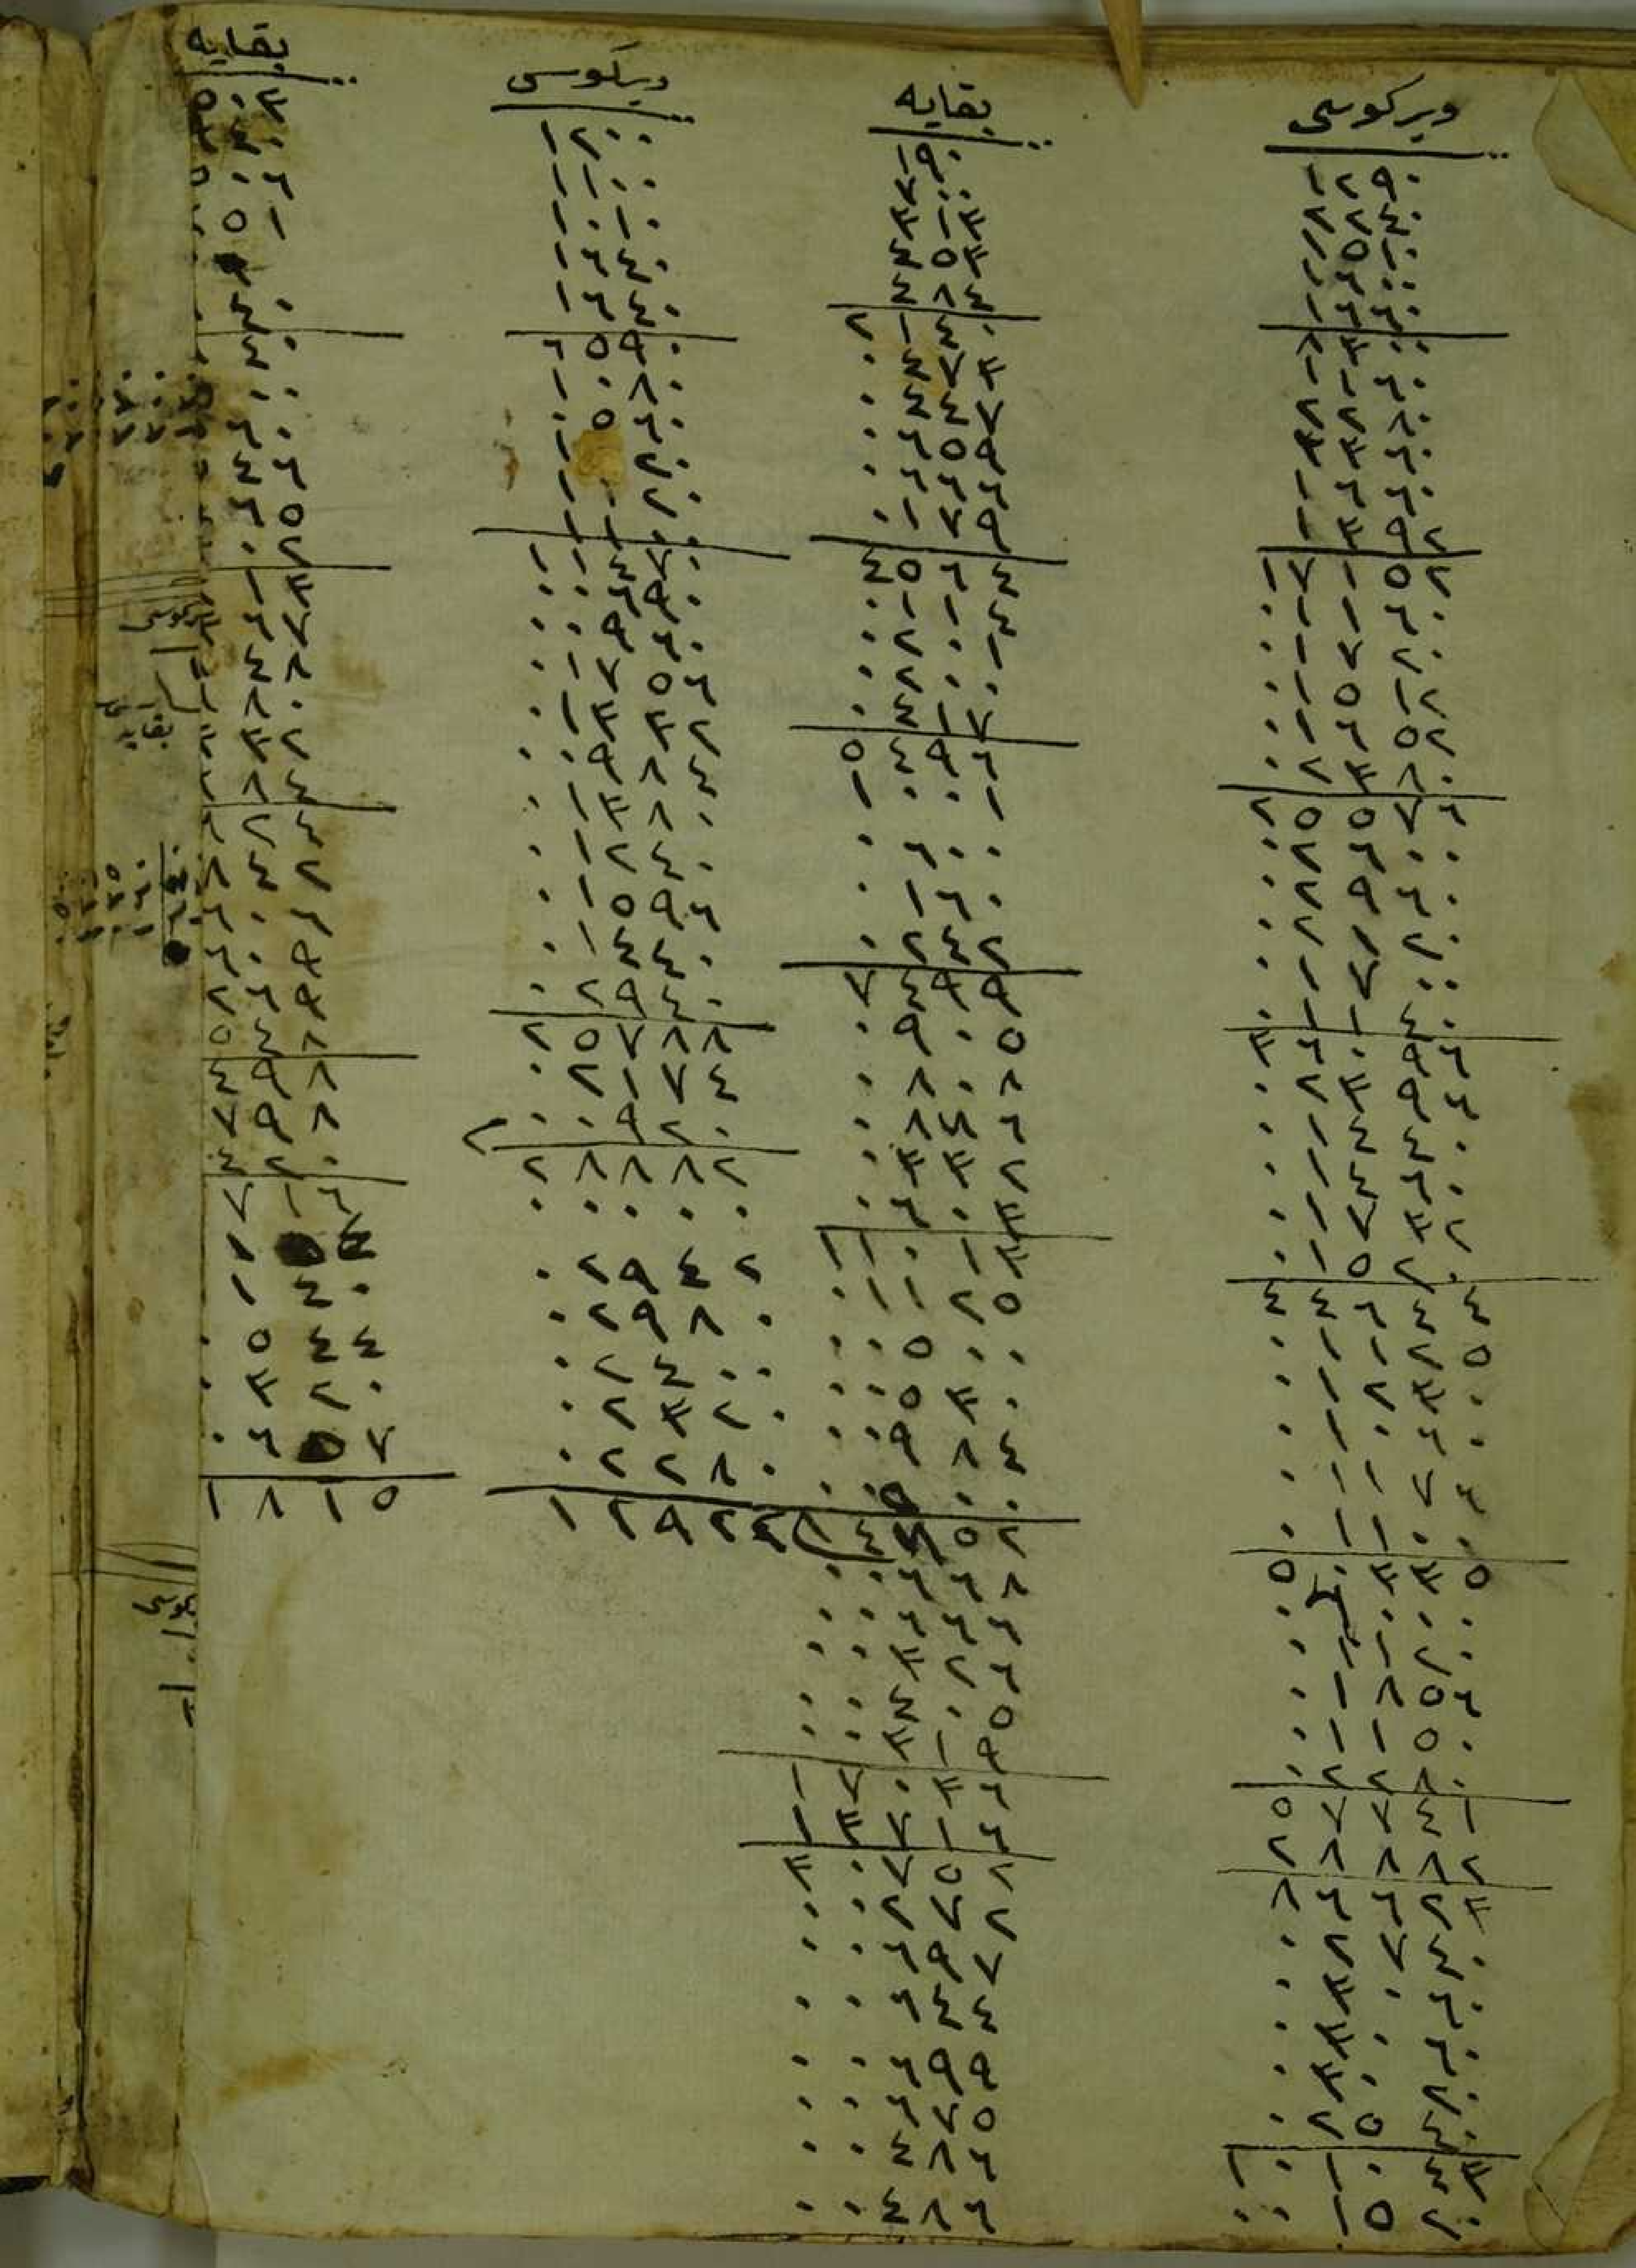 ويركوسى
١٢٩٠
٢٢٤٠
١٥١٠
١٦٠٠
١٦٦٠
٨٣٠٠
١١٦٠
٢٢٨٠
٢٣٦٠
١٦٦٠
١٣٩٢
١٧١٥٢
٠١١٦٠
٠١٧٢٠
٠١٥١٢
٠١٦٥٢
٠٢٣٨٠
٢٥٥٧٦
٠٢٦٠٠
٠٢٩٦٠
٠٢١٢٠
٠١٧٠٠
٠١١٤٠
٣٦٠٩٦
٠٢٣٩٦
٠١٤٤٠
٠١٤٦٠
٠١٧٣٢
٠١٥٢٠
٤٤٦٤٤
٠١١٢٥
٠١٢٣٠
٠١٠٦٠
٠١١٧٦
٠١١٠٠
٥٠٣٣٥
٠١٠٠٠
٠١١٢٠
٠١٨٥٦
٠١١٥٠
٠٢٢٨٠
٥٧٧٤١
٢٨٨٨٢
٨٦٦٢٣
٠٢٧٤٠
٠٣٠٦٠
٠٣٠٦٠
٠٣٠٢٠
٠٢٥٤٠
١٠١٠٤٣
٠٠١٥٢٠
بقايه
١٩٠
٧٠٠
٣١٣
٤٥٣
٤٨٤
٢١٤٠
٠٤٧٣
٠٤٤٧
٠٦٥٩
٠٦٦٦
٠١٧٩
٤٥٦٤
٠١١٤
٠٢٠١
٠٢٠٠
٠٤١٧
٥٤٩٦
١٠٠١
٠٦٠٠
٠١٦٠
٠٢٤٢
٧٤٩٩
٠٩٠٥
٠٨٠٨
٠٨٦٦
٠٣٣٢
٠٦٠٣
١١٠١٣
٠١١٢٥
٠٠٥٠٠
٠٠٥٣٠
٠٠٩٨٤
٠٠٥٠٠
١٤٦٥٢
٠٠٦٦٨
٠٠٦٦٦
٠٠٣٢٦
٠٠٤٠٥
٠٠٣١٩
١٧٠٣٦
١٣٧١٦
٣٠٧٥٢
٠٠٢٧٢
٠٠٦٩٧
٠٠٦٤٤
٠٠٦٩٩
٠٠٦٧٥
٠٠٤٨٦
٠٠٤٨٦
ويركوسى
١٢٠٠
١١٠٠
١٠١٠
١٦٤٠
١٦٤٠
٦٥٩٠
١٠٨٠
٠٥٦٠
١١٢٠
١٠٢٠
١١٠٠
١١٤٧٠
٠٠٦٩٠
٠٠٩٦٠
٠١٧٥٦
٠١٣٣٢
٠٠٩٨٤
٠١٣٨٠
٠١٢٤٠
٠١٥٩٦
٠١٤٤٠
٠٢٩٤٠
٢٥٧٨٨
٠٢١٧٤
٠٠٩٢٠
٢٨٨٨٢
٠٠٠٠٠
٠٢٩٤٢
٠٢٩٨٠
٠٢٤٠٠
٠٢٣٢٠
٠٢٢٨٠
١٢٩٢٢
بقايه
٥٠٣
٥٠٦
٠٥١
٤٠
٤٠
٠٠
٦٠
٤٦
٦٥
٠٢
١٣
٦٧
٤٨
٨٠
٣٢
٨٤
٦٢٤
٨٤٢
٦٠٦
٦٠٩
٢٦٩
٥٤٨
٤٩٨
٧٩٨
٤٢٠
٧١٦
١٥٤
١٤٠
٠٥٤٤
٠٣٢٠
٠٦٥٧
١٨١٥
بقايه